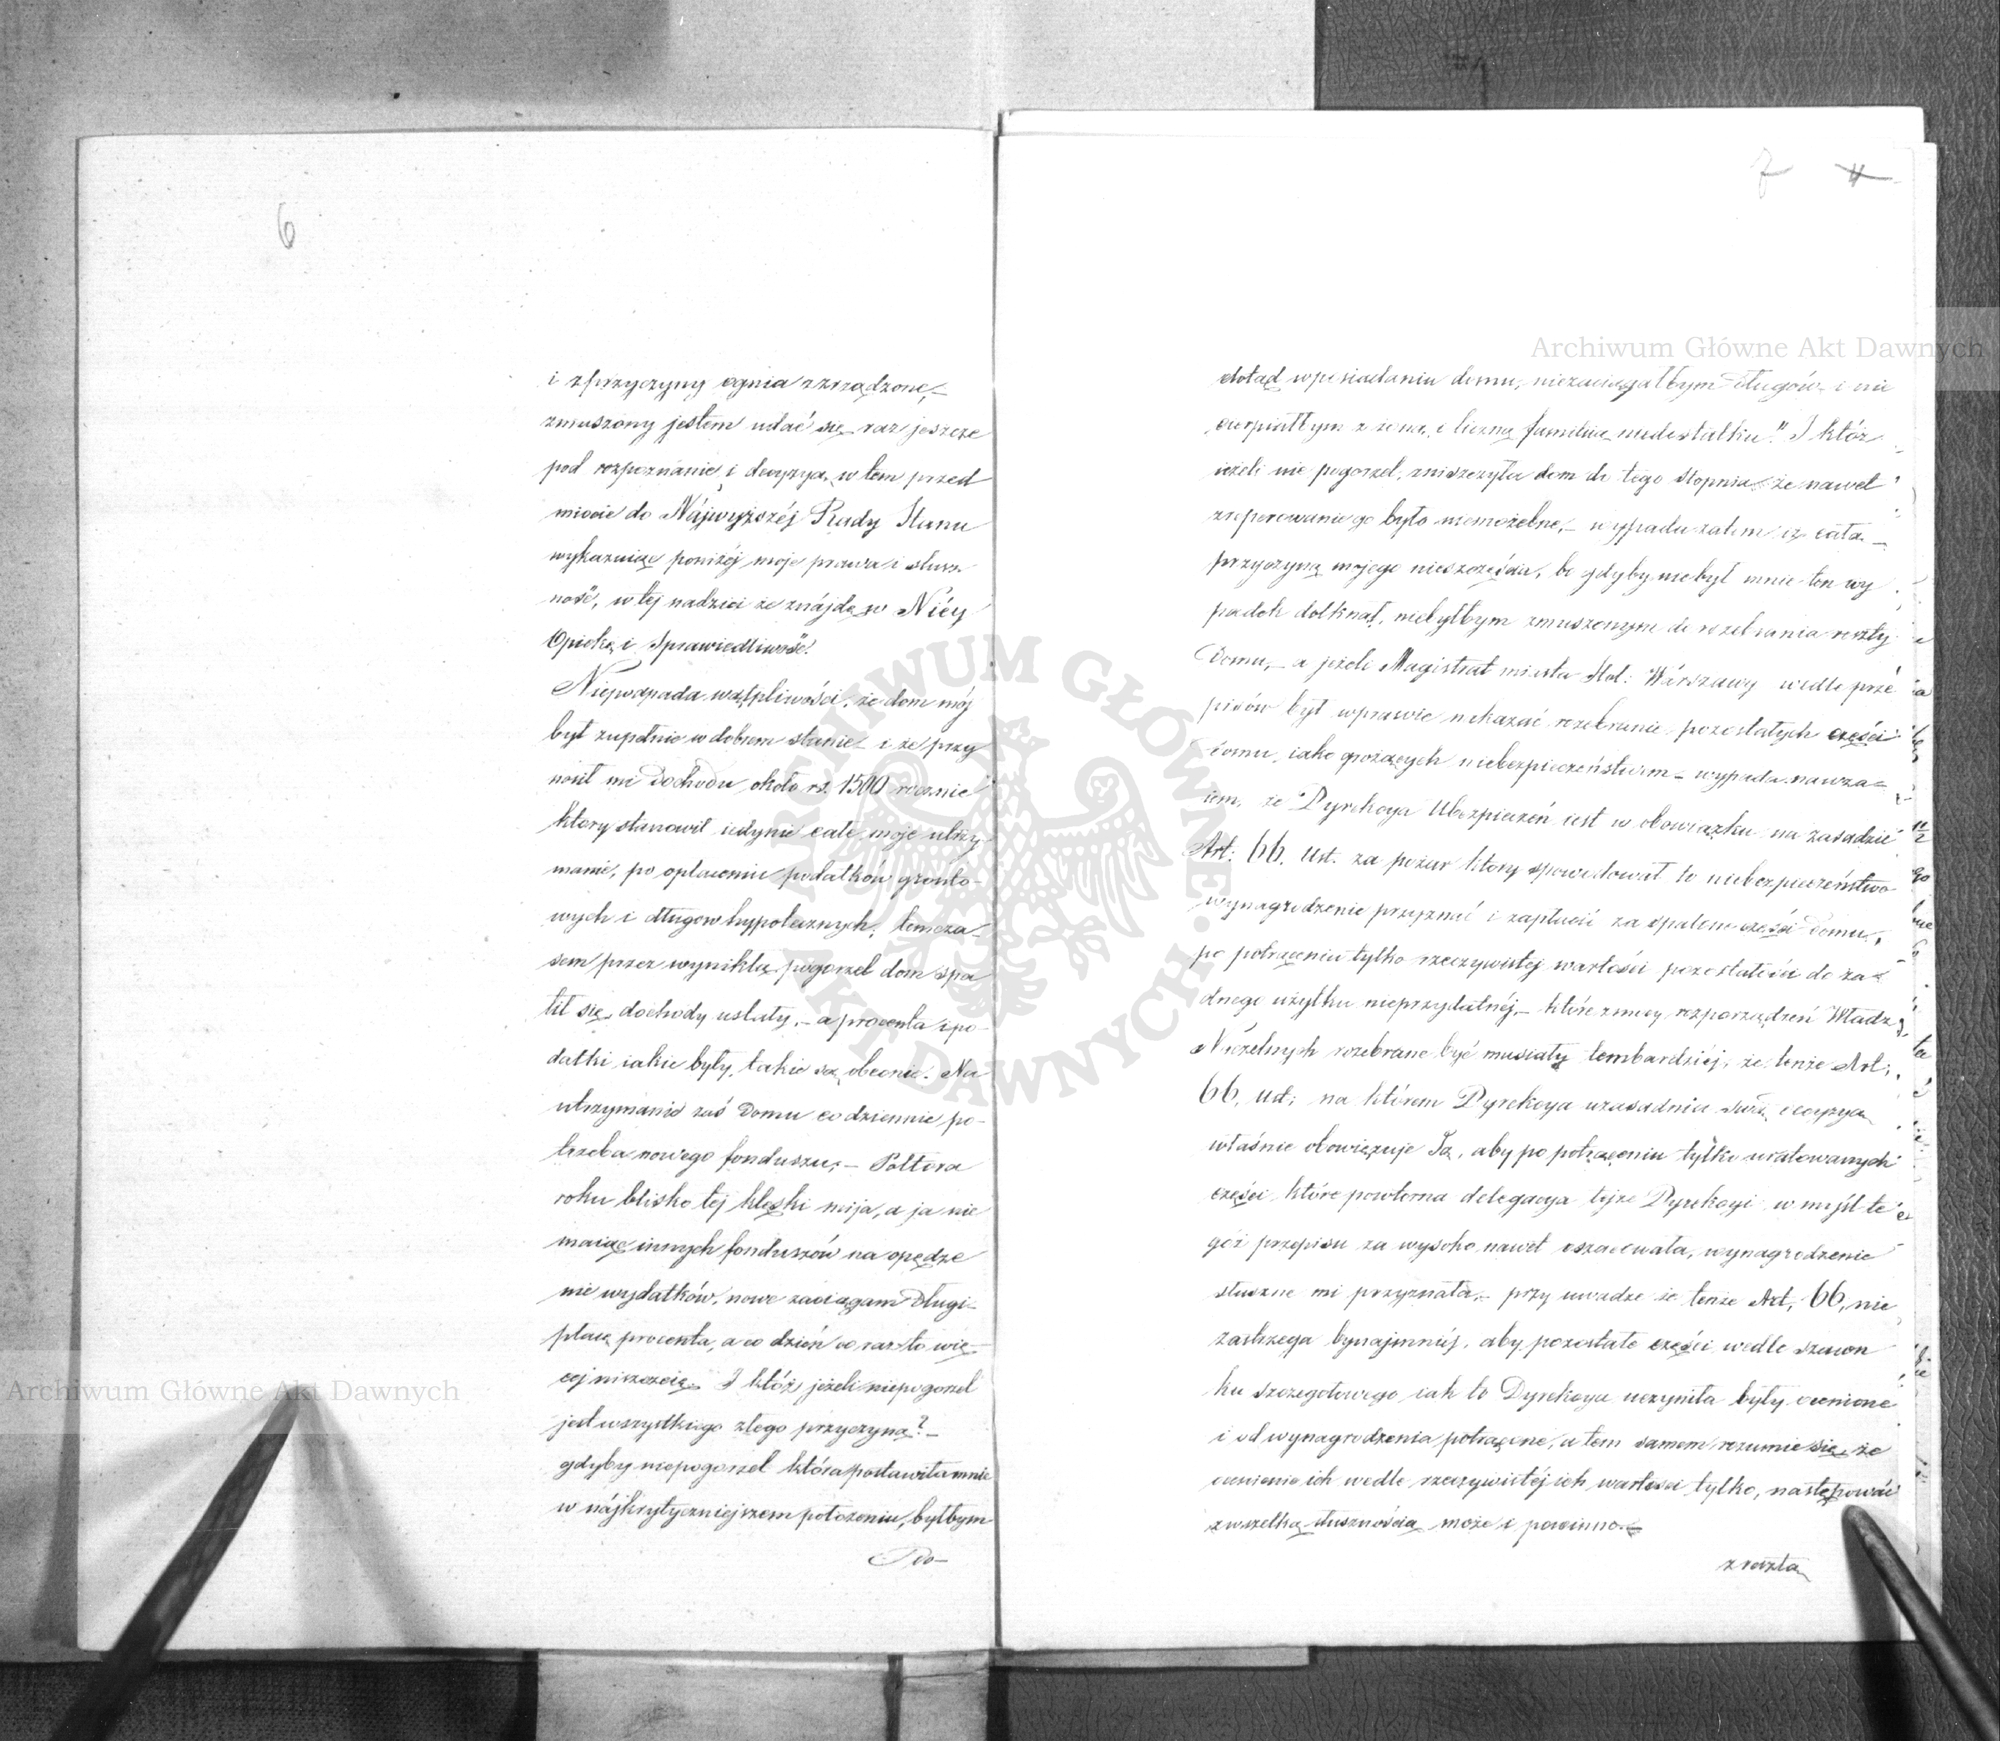 6
i z przyczyny ognia zrządzone,—
zmuszony jestem udać się raz jeszcze
pod rozpoznanie i decyzyą, w tem przed
miocie do Najwyższéj Rady Stanu
wykazuiąc poniżéj moje prawa i słusz
ność, w tej nadziei że znájdę w Niéy
Opiekę i Sprawiedliwość.
Niepodpada wątpliwości, że dom mój
był zupełnie w dobrem stanie i że przy
nosił mi Dochodu około rs. 1500 rocznie
ktory stanowił iedynie całe moje utrzy
manie, po opłaceniu podatków grónto-
wych i długow hyppotecznych, temcza-
sem przez wynikłą pogorzel dom spa
lił się, dochody ustały,— a procenta i po-
datki iakie były, takie są obecnie. Na
utrzymanie zaś Domu codziennie po-
trzeba nowego fonduszu,— Półtora
roku blisko tej klęski mija, a ja nie
maiąc innych fonduszów na opędze
nie wydatków, nowe zaciągam Długi—
płacę procenta, a co dzień co raz to wię—
cej niszczeię. I któż jeżeli niepogorzel
jest wszystkiego złego przyczyną?—
gdyby niepogorzel która postawiła mnie
w nájkrytyczniejszem położeniu, byłbym
Do—
7 4
dotąd w posiadaniu domu, niezaciągałbym Długów i nie
cierpiałbym z żoną i liczną familią niedostatku!! I któż
ieżeli nie pogorzel, zniszczyła dom do tego stopnia że nawet
zreperowanie go było niemożebne,— wypada zatem iż cała—
przyczyną mojego nieszczęścia, bo gdyby niebył mnie ten wy
padek dotknął, niebyłbym zmuszonym do rozebrania reszty
Domu,— a jeżeli Magistrat miasta Stoł: Warszawy wedle prze
pisów był w prawie nakazać rozebranie pozostałych części
Domu, iako grożących niebezpieczeństwem— wypada nawza=
iem, że Dyrekcya Ubezpieczeń iest w obowiązku na zasadzie
Art: 66. Ust. za pożar ktory spowodował to niebezpieczeństwo
wynagrodzenie przyznać i zapłacić za spalone części Domu,
po potrąceniu tylko rzeczywistej wartości pozostałości do ża=
dnego użytku nieprzydatnéj,— które z mocy rozporządzeń Władz
Naczelnych rozebrane być musiały tembardziéj, że tenże Art:
66. ust: na którem Dyrekcya uzasadnia swą decyzyą
właśnie obowiązuje Ją, aby po potrąceniu tylko uratowanych
części, które powtorna delegacya tejże Dyrekcyi w myśl te
goż przepisu za wysoko nawet oszacowała, wynagrodzenie
słuszne mi przyznała,— przy uwadze że tenże Art, 66, nie
zastrzega bynajmniéj, aby pozostałe części wedle szacon
ku szczegołowego iak to Dyrekcya uczyniła były cenione
i od wynagrodzenia potrącone, a tem samem rozumie się, że
ocenienie ich wedle rzeczywistéj ich wartości tylko, następować
z wszelką słusznością może i powinno—
zresztą
Archiwum Główne Akt Dawnych
Archiwum Główne Akt Dawnych
ARCHIWUM GŁÓWNE
AKT DAWNYCH